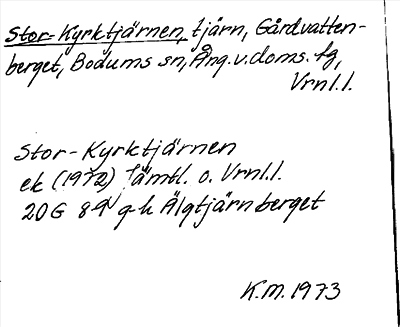 Stor-Kyrktjärnen, tjärn, Gårdvatten-
berget, Bodums sn, Ång.v.doms. fg,
Vrnl.l.
Stor-Kyrktjärnen
ek (1972) Jämtl. o. Vrnl.l.
20G 8-9 g-h Älgtjärnberget
K.M. 1973